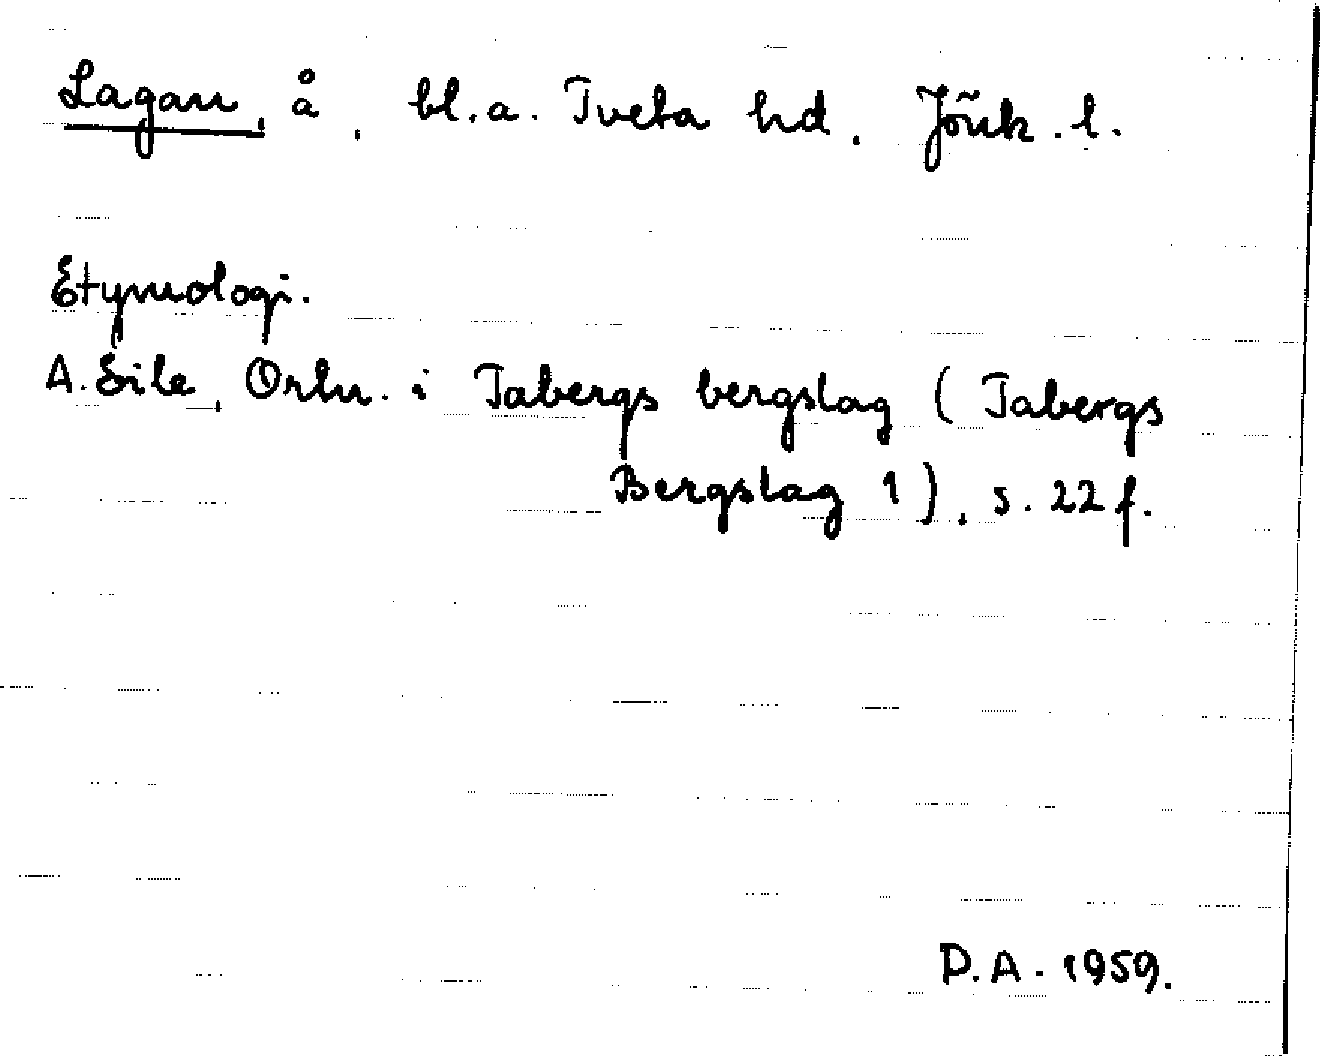 Lagan, å, bl.a. Tveta hd. Jönk. l.
Etymologi.
A. Eile, Ortn. i Tabergs bergslag (Tabergs
Bergslag 1), s. 22 f.
D.A. 1959.